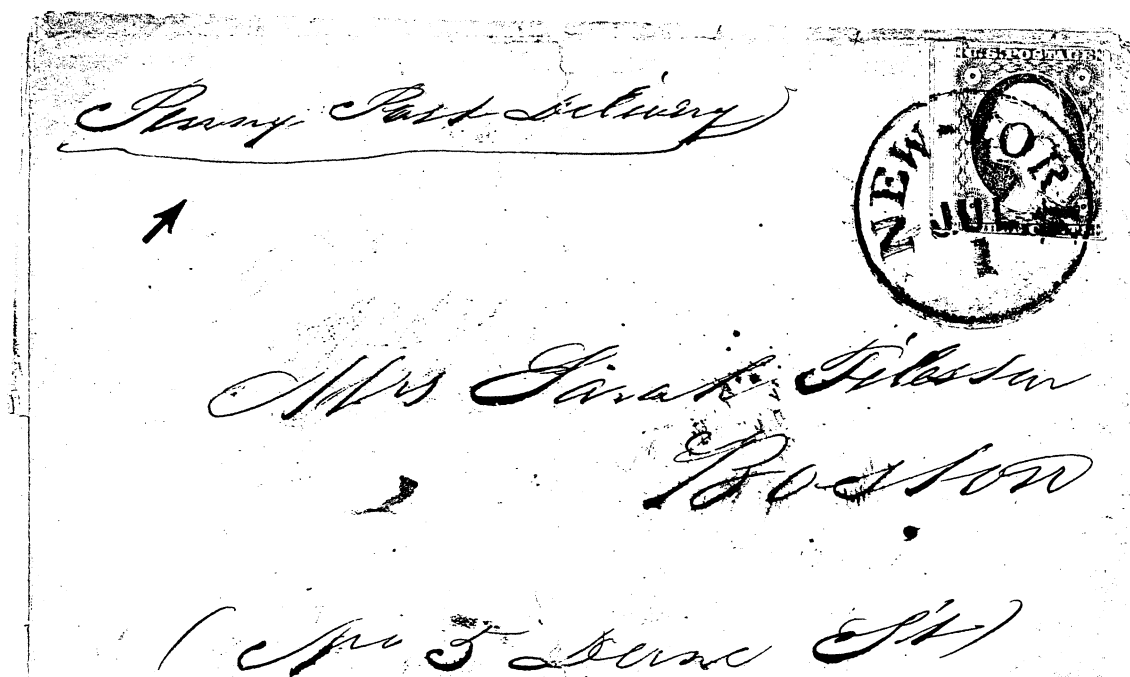 Penny Post Delivery
U.S. POSTAGE
NEW-YORK
JUL
1
Mrs Sarah
Boston
(No 5 Derne St)